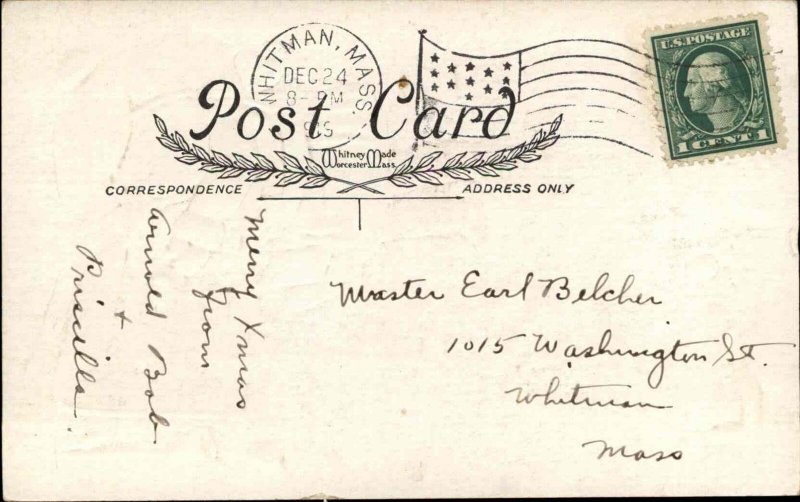 WHITMAN, MASS.
DEC 24
8 - PM
Post Card
Whitney Made
Worcester Mass.
CORRESPONDENCE
ADDRESS ONLY
U.S. POSTAGE
1 CENT 1
Merry Xmas
from
Arnold Bob
+
Priscilla.
Master Earl Belcher
1015 Washington St.
Whitman
Mass